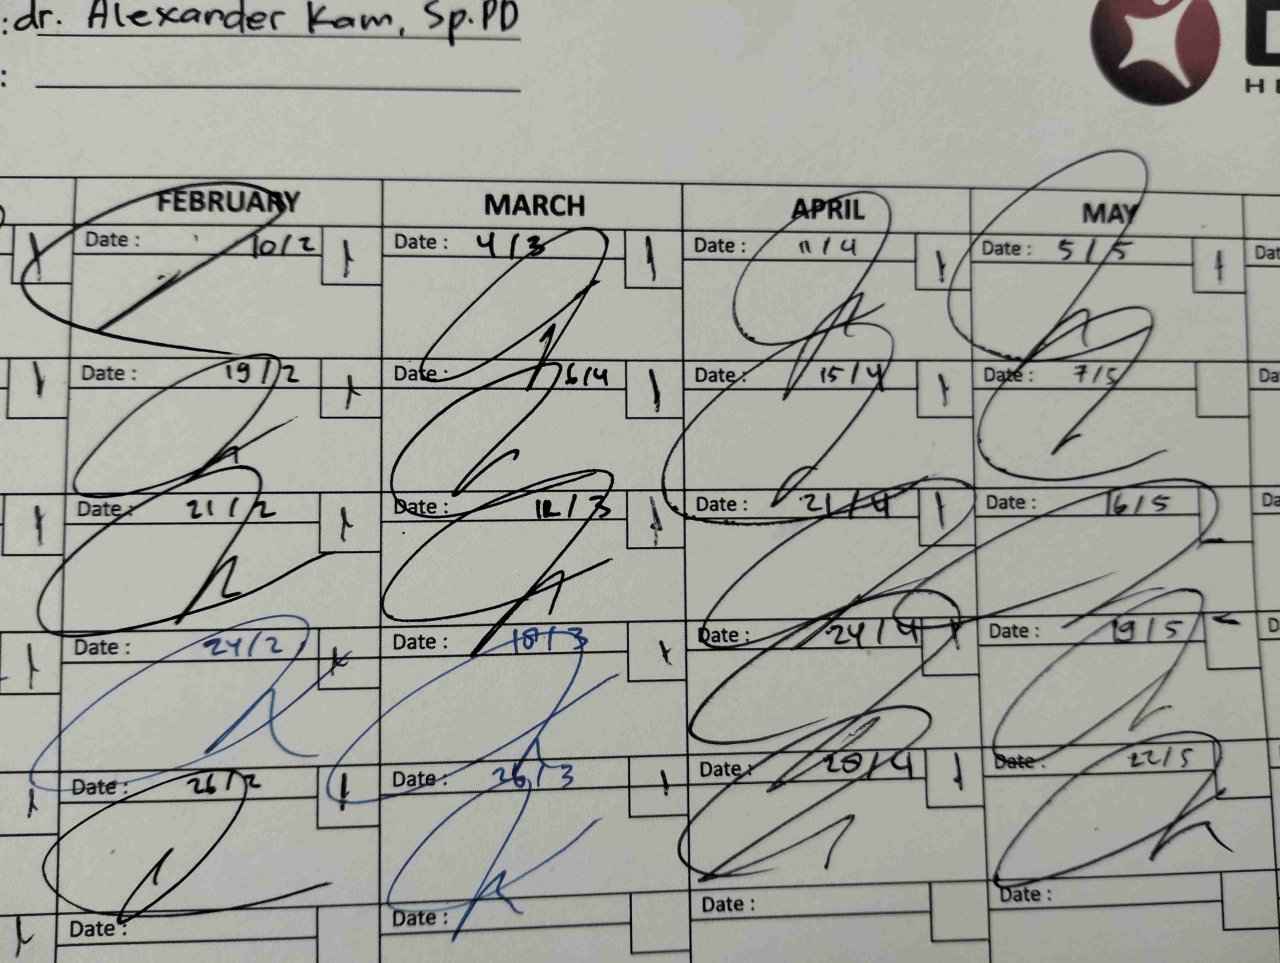 : dr. Alexander Kam, Sp.PD
:
HE
FEBRUARY MARCH APRIL MAY
Date : 10/2 1 Date : 4/3 1 Date : 11/4 1 Date : 5/5 1 Dat
Date : 19/2 1 Date : 6/4 1 Date : 15/4 1 Date : 7/5 Da
Date : 21/2 1 Date : 12/3 1 Date : 21/4 1 Date : 16/5 D
Date : 24/2 1 Date : 18/3 1 Date : 24/4 1 Date : 19/5 D
Date : 26/2 1 Date : 26/3 1 Date : 28/4 1 Date : 22/5
Date : Date : Date : Date :